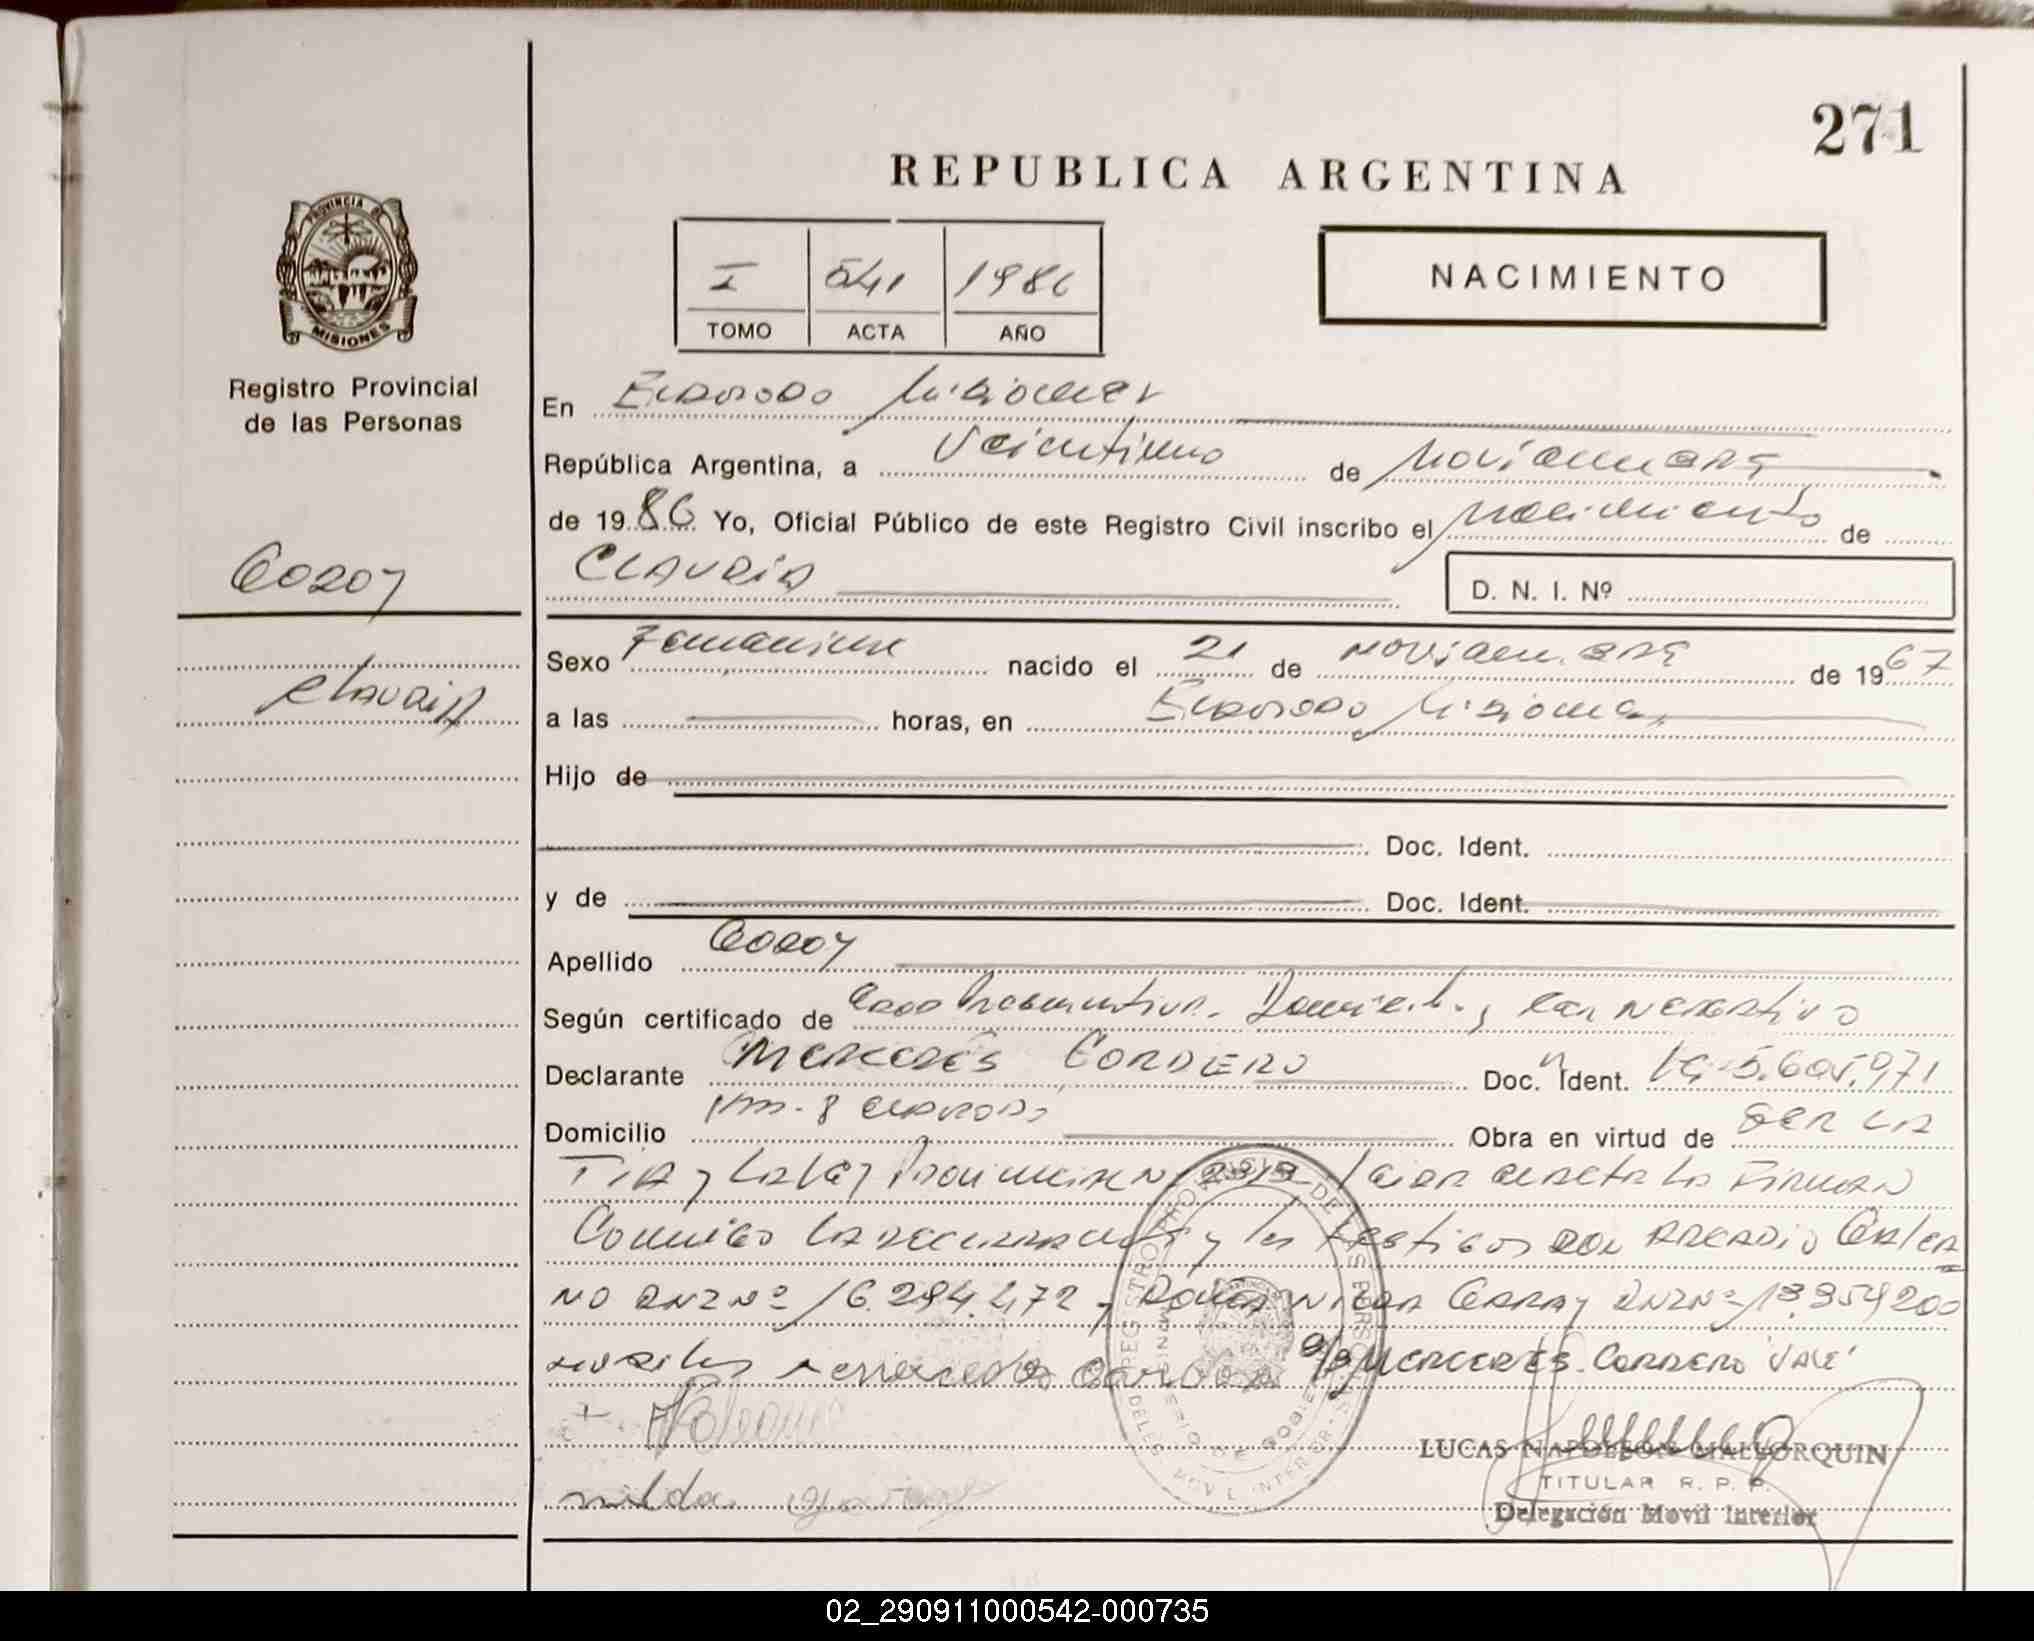 271
REPUBLICA ARGENTINA
PROVINCIA DE
MISIONES
Registro Provincial
de las Personas
I 541 1986
TOMO ACTA AÑO
NACIMIENTO
En Eldorado Misiones
República Argentina, a Veintiuno de Noviembre
de 1986 Yo, Oficial Público de este Registro Civil inscribo el Nacimiento de
Claudia
D. N. I. Nº
Godoy
Claudia
Sexo Femenino nacido el 21 de Noviembre de 1967
a las horas, en Eldorado Misiones
Hijo de
Doc. Ident.
y de Doc. Ident.
Apellido Godoy
Según certificado de Edad Presuntiva, Domicilio y Cer Negativo
Declarante Mercedes Cordero Doc. Ident. 5.605.971
Domicilio Km. 8 Eldorado Obra en virtud de Ser La
Tia y La Ley Provincial Nº Leida el Acta La Firman
Conmigo La declarante y los testigos Don Arcadio
no DNI Nº 16.294.472 y Doña Nilda Garay DNI Nº
Mercedes Cordero "Vale"
Nilda
LUCAS NAPOLEON MALLORQUIN
TITULAR R. P. P.
Delegación Movil Interior
02_290911000542-000735